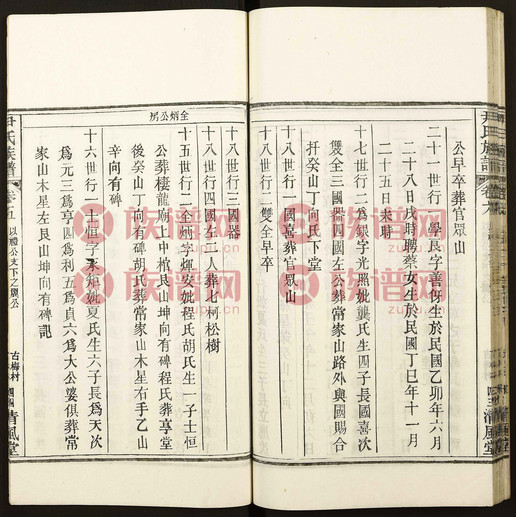 公早卒葬官眾山
二十一世行一學良字善衍生於民國乙卯年六月
二十八日戌時聘蔡女生於民國丁巳年十一月
二十五日未時
十七世行二為銀字光照妣龔氏生四子長國喜次
雙全三國四國左公葬常家山路外與國賜合
扦癸山丁向氏下堂
十八世行一國喜葬官眾山
十八世行二雙全早卒
十八世行三國器
十八世行四國左三人葬七柯松樹
十五世行二全炳字煇安妣程氏胡氏生一子士恒
公葬棲龍廟上中棺艮山坤向有碑程氏葬亨堂
後癸山丁向有碑胡氏葬常家山木星右手乙山
辛向有碑
十六世行一士恒字
妣夏氏生六子長為天次
為元三為亨四為利五為貞六為大公婆俱葬常
家山木星左艮山坤向有碑記
全炳公房
尹氏族譜
卷五
以禮公天下之麗公
古梅村
清風堂
尹氏族譜
清風堂
族谱网
zupu.cn